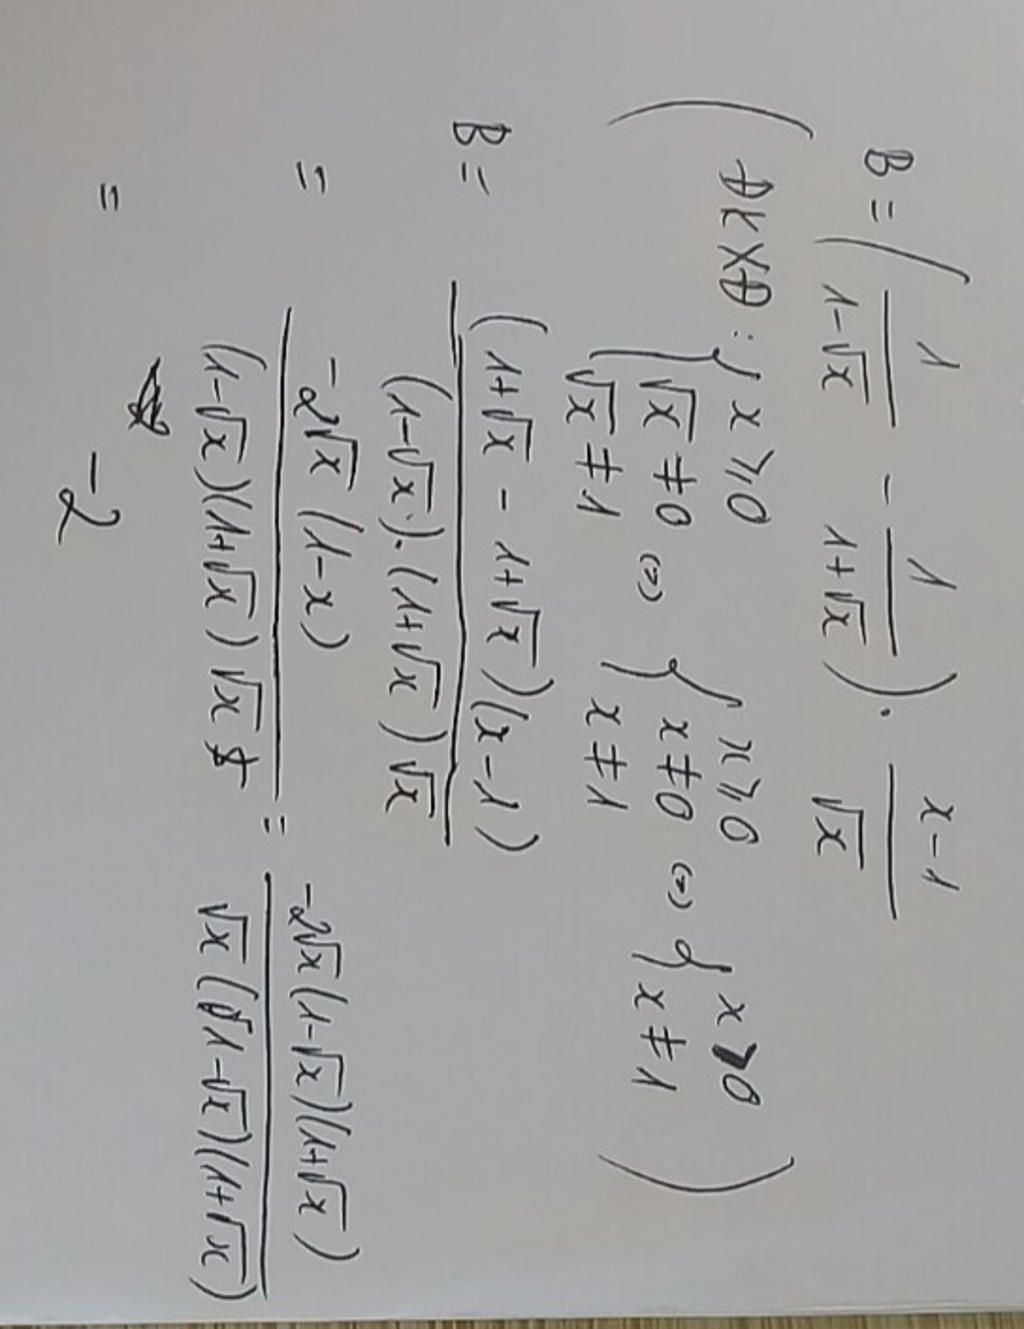 B = ( 1/(1-√x) - 1/(1+√x) ) . (x-1)/√x
( ĐKXĐ : { x ⩾ 0 ; √x ≠ 0 ; √x ≠ 1 ⇔ { x ⩾ 0 ; x ≠ 0 ; x ≠ 1 ⇔ { x > 0 ; x ≠ 1 )
B = (1+√x - 1+√x)(x-1) / (1-√x).(1+√x)√x
= -2√x(1-x) / (1-√x)(1+√x)√x = -2√x(1-√x)(1+√x) / √x(1-√x)(1+√x)
= -2